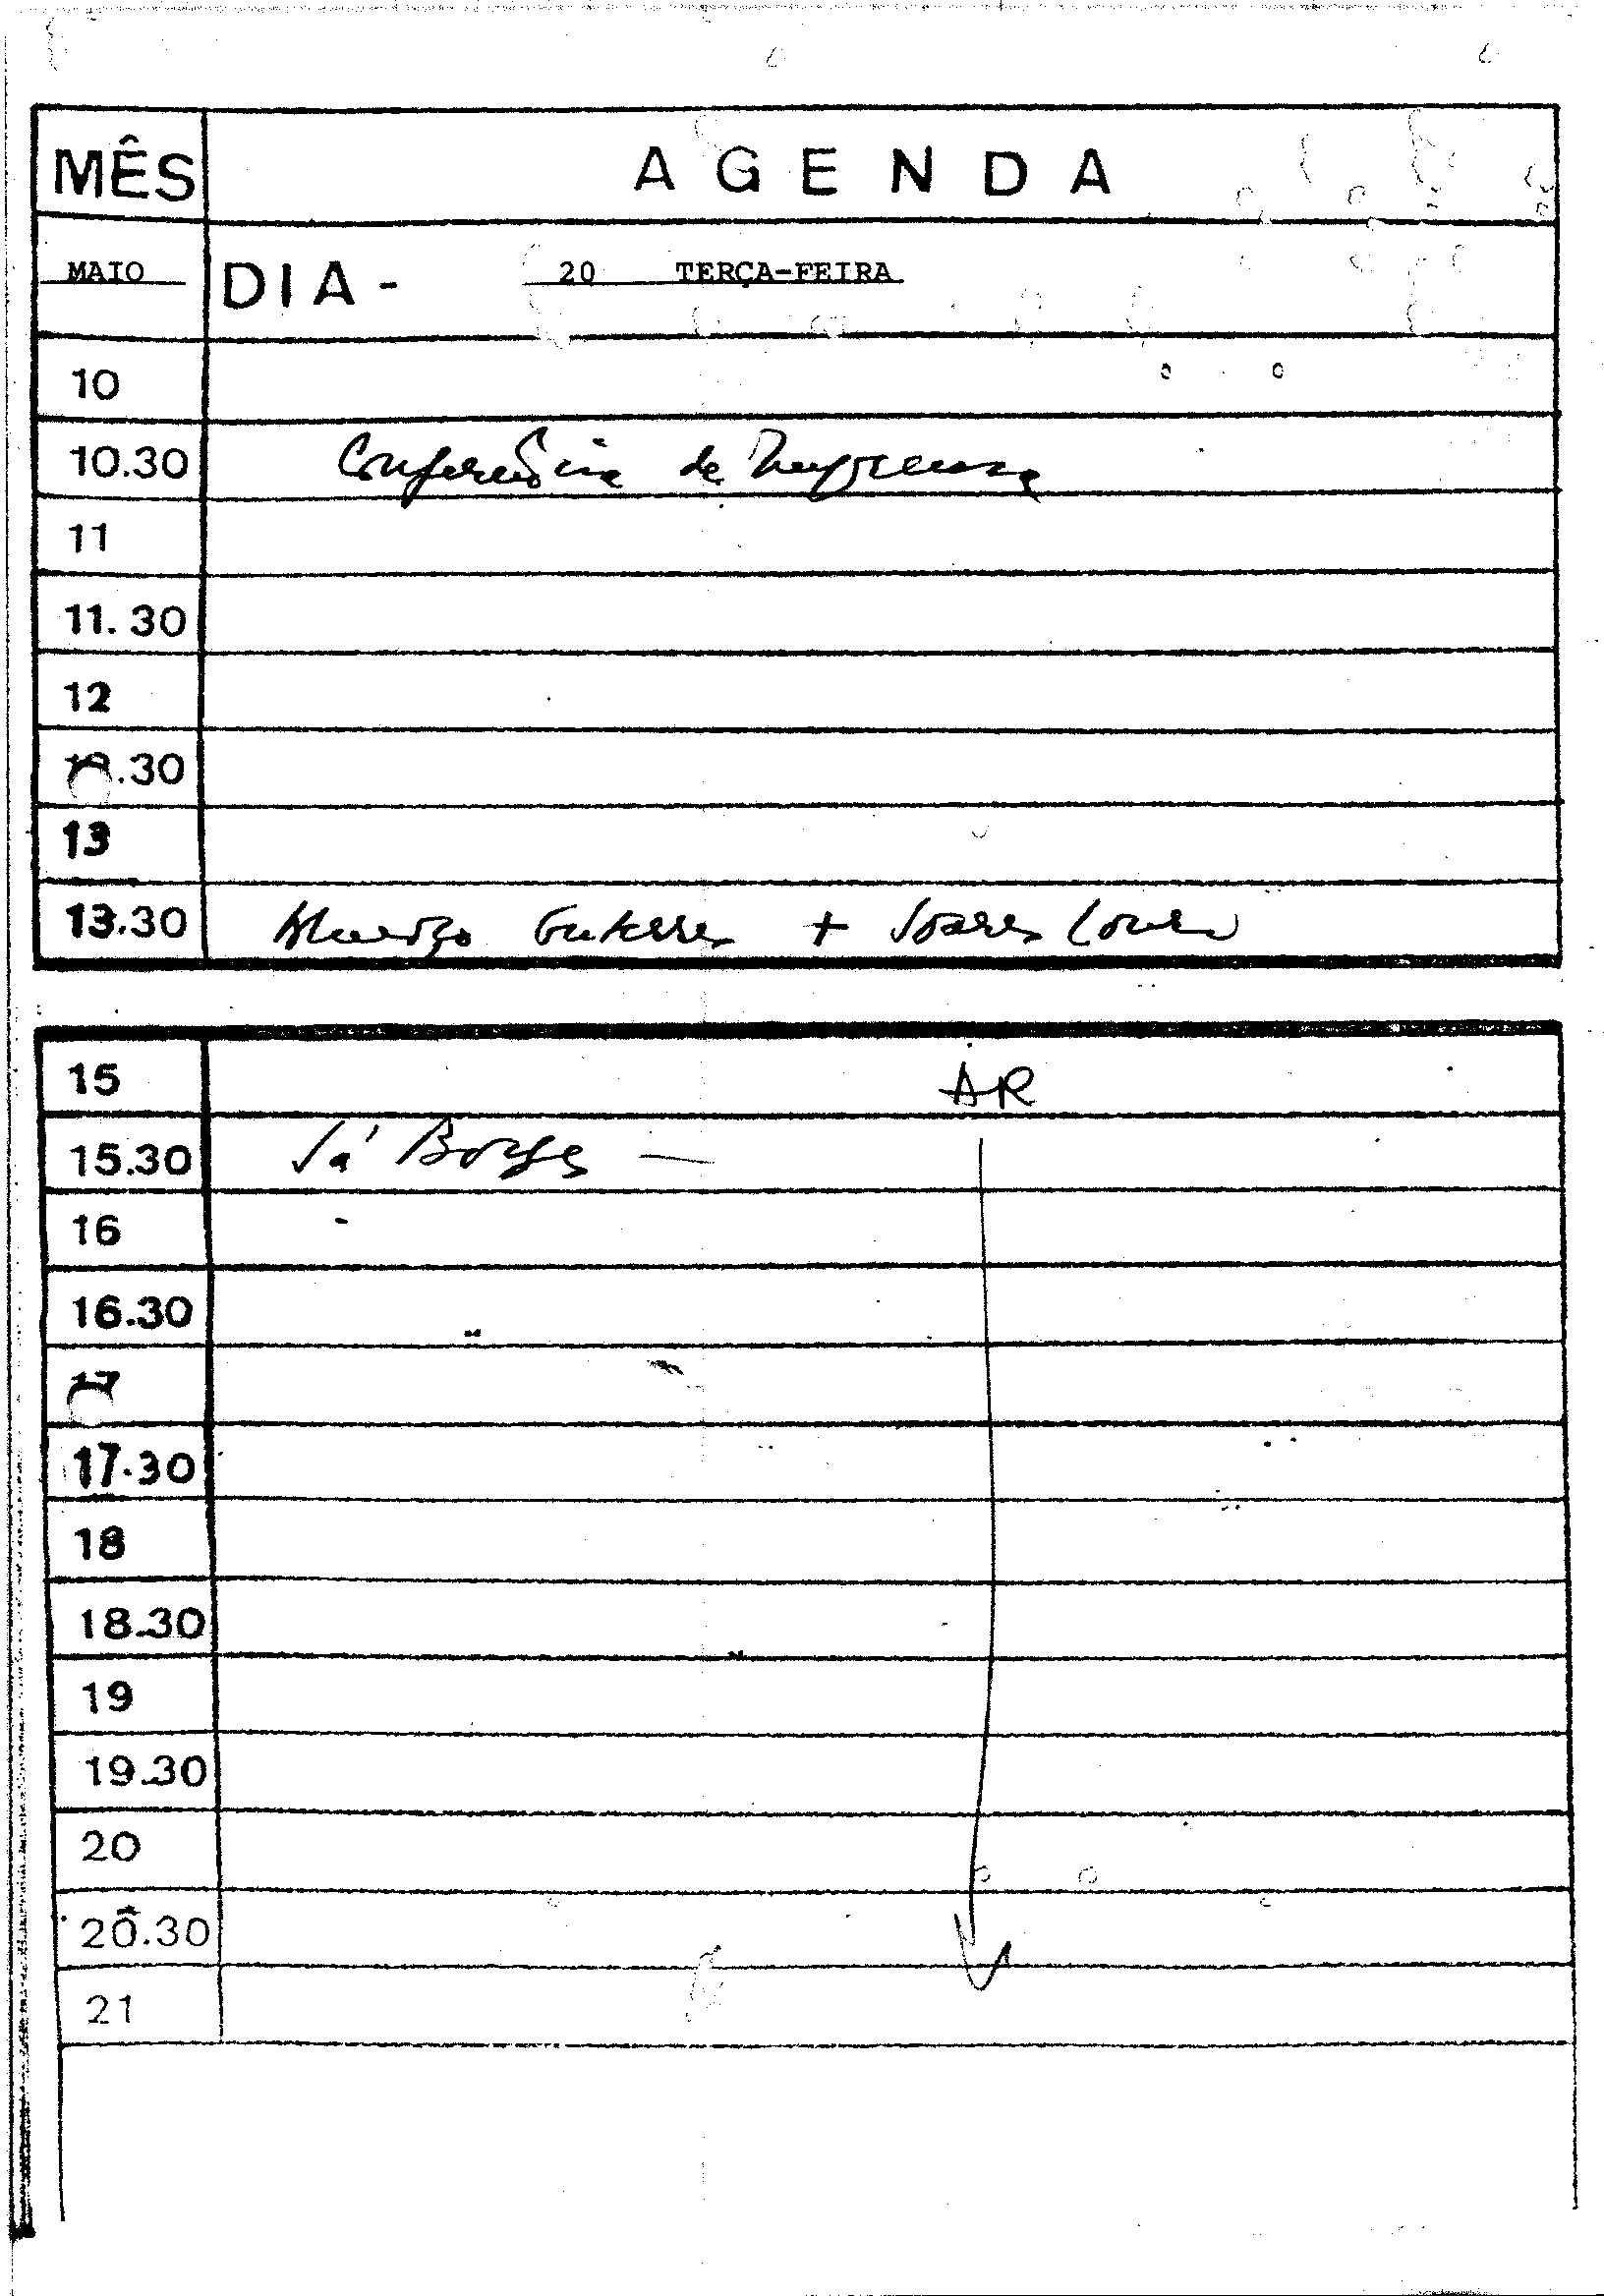 MÊS AGENDA
MAIO DIA - 20 TERÇA-FEIRA
10
10.30 Conferência de Imprensa
11
11.30
12
12.30
13
13.30 Almoço Guterres + Soares Louro
15 AR
15.30 Sá Borges —
16
16.30
17
17.30
18
18.30
19
19.30
20
20.30
21